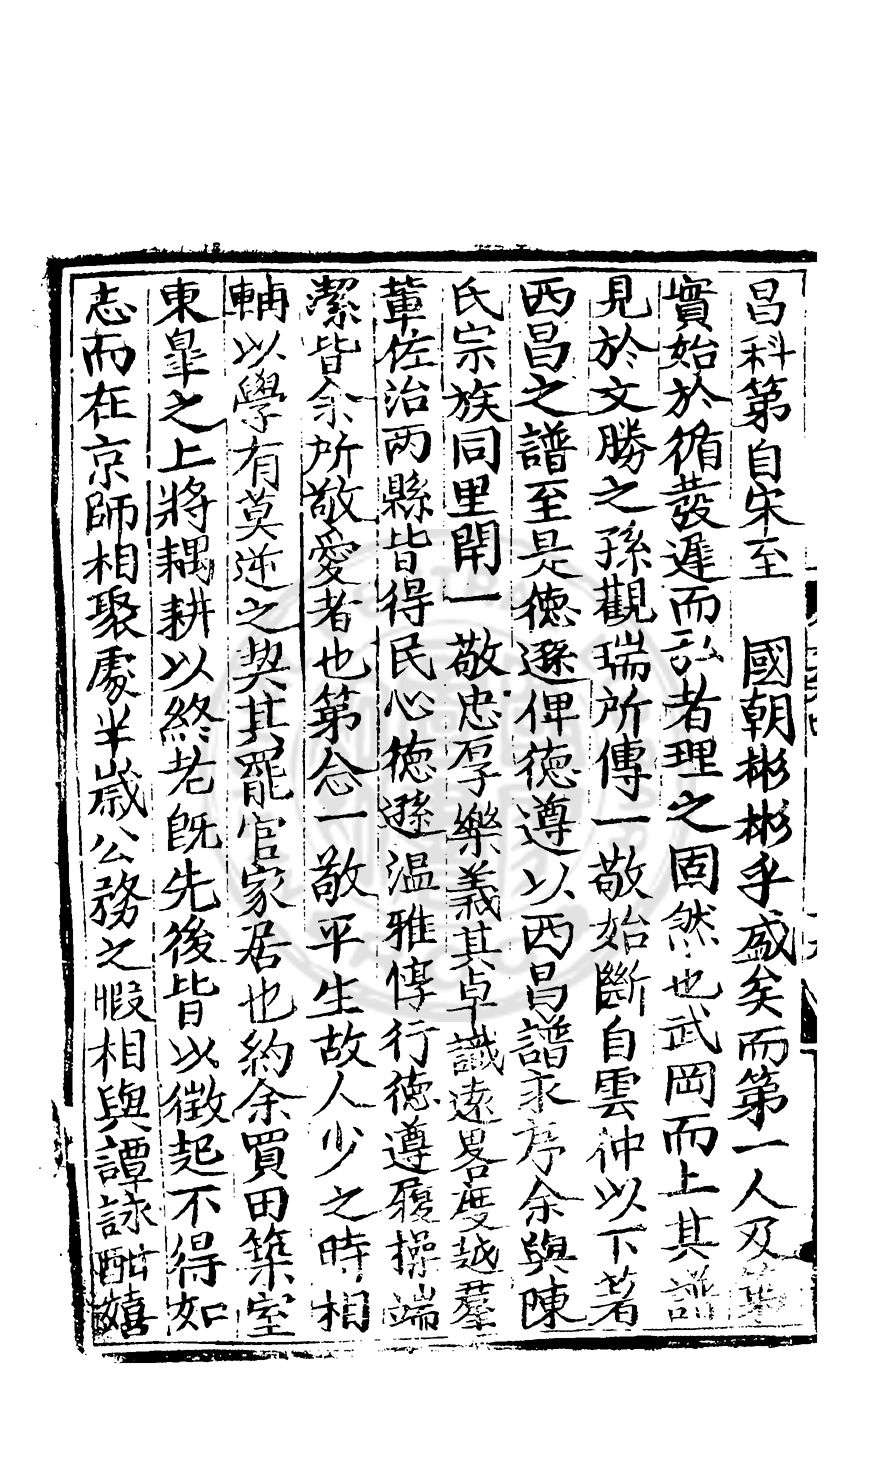 昌科第自宋至　國朝彬彬乎盛矣而第一人及第
實始於循發遲而弘者理之固然也武岡而上其譜
見於文勝之孫觀瑞所傳一敬始斷自雲仲以下著
西昌之譜至是德遜俾德遵以西昌譜求序余與陳
氏宗族同里閈一敬忠厚樂義其卓識遠畧度越羣
輩佐治两縣皆得民心德遜温雅惇行德遵履操端
潔皆余所敬愛者也第念一敬平生故人少之時相
輔以學有莫逆之契其罷官家居也約余買田築室
東臯之上將耦耕以終老旣先後皆以徵起不得如
志而在京師相聚處半歲公務之暇相與譚詠酣嬉